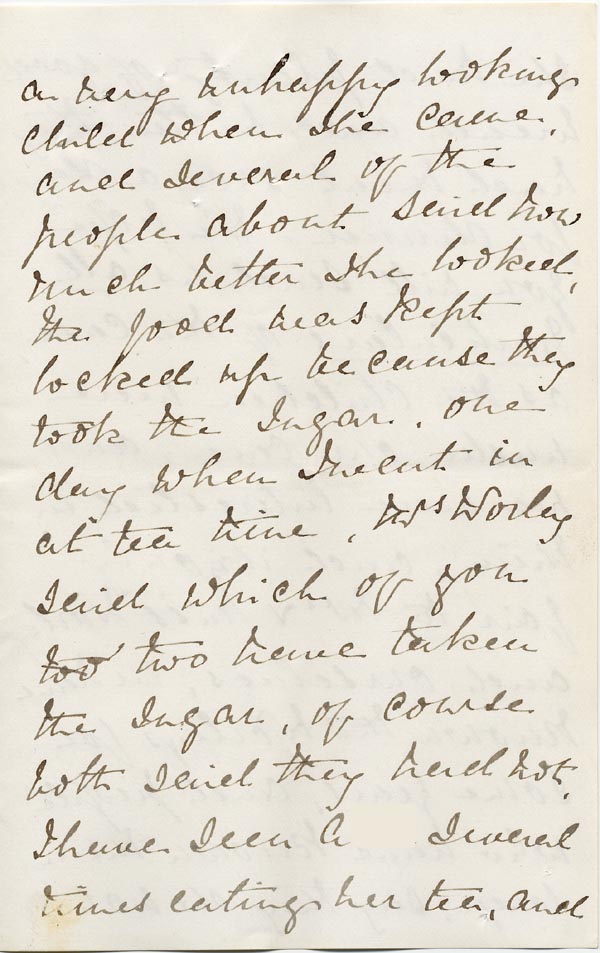 a very unhappy looking
child when she came,
and several of the
people about said how
much better she looked,
the food was kept
locked up because they
took the sugar. one
day when I went in
at tea time, Mrs Worley
said which of you
too two have taken
the sugar, of course
both said they had not.
I have seen A several
times eating her tea, and